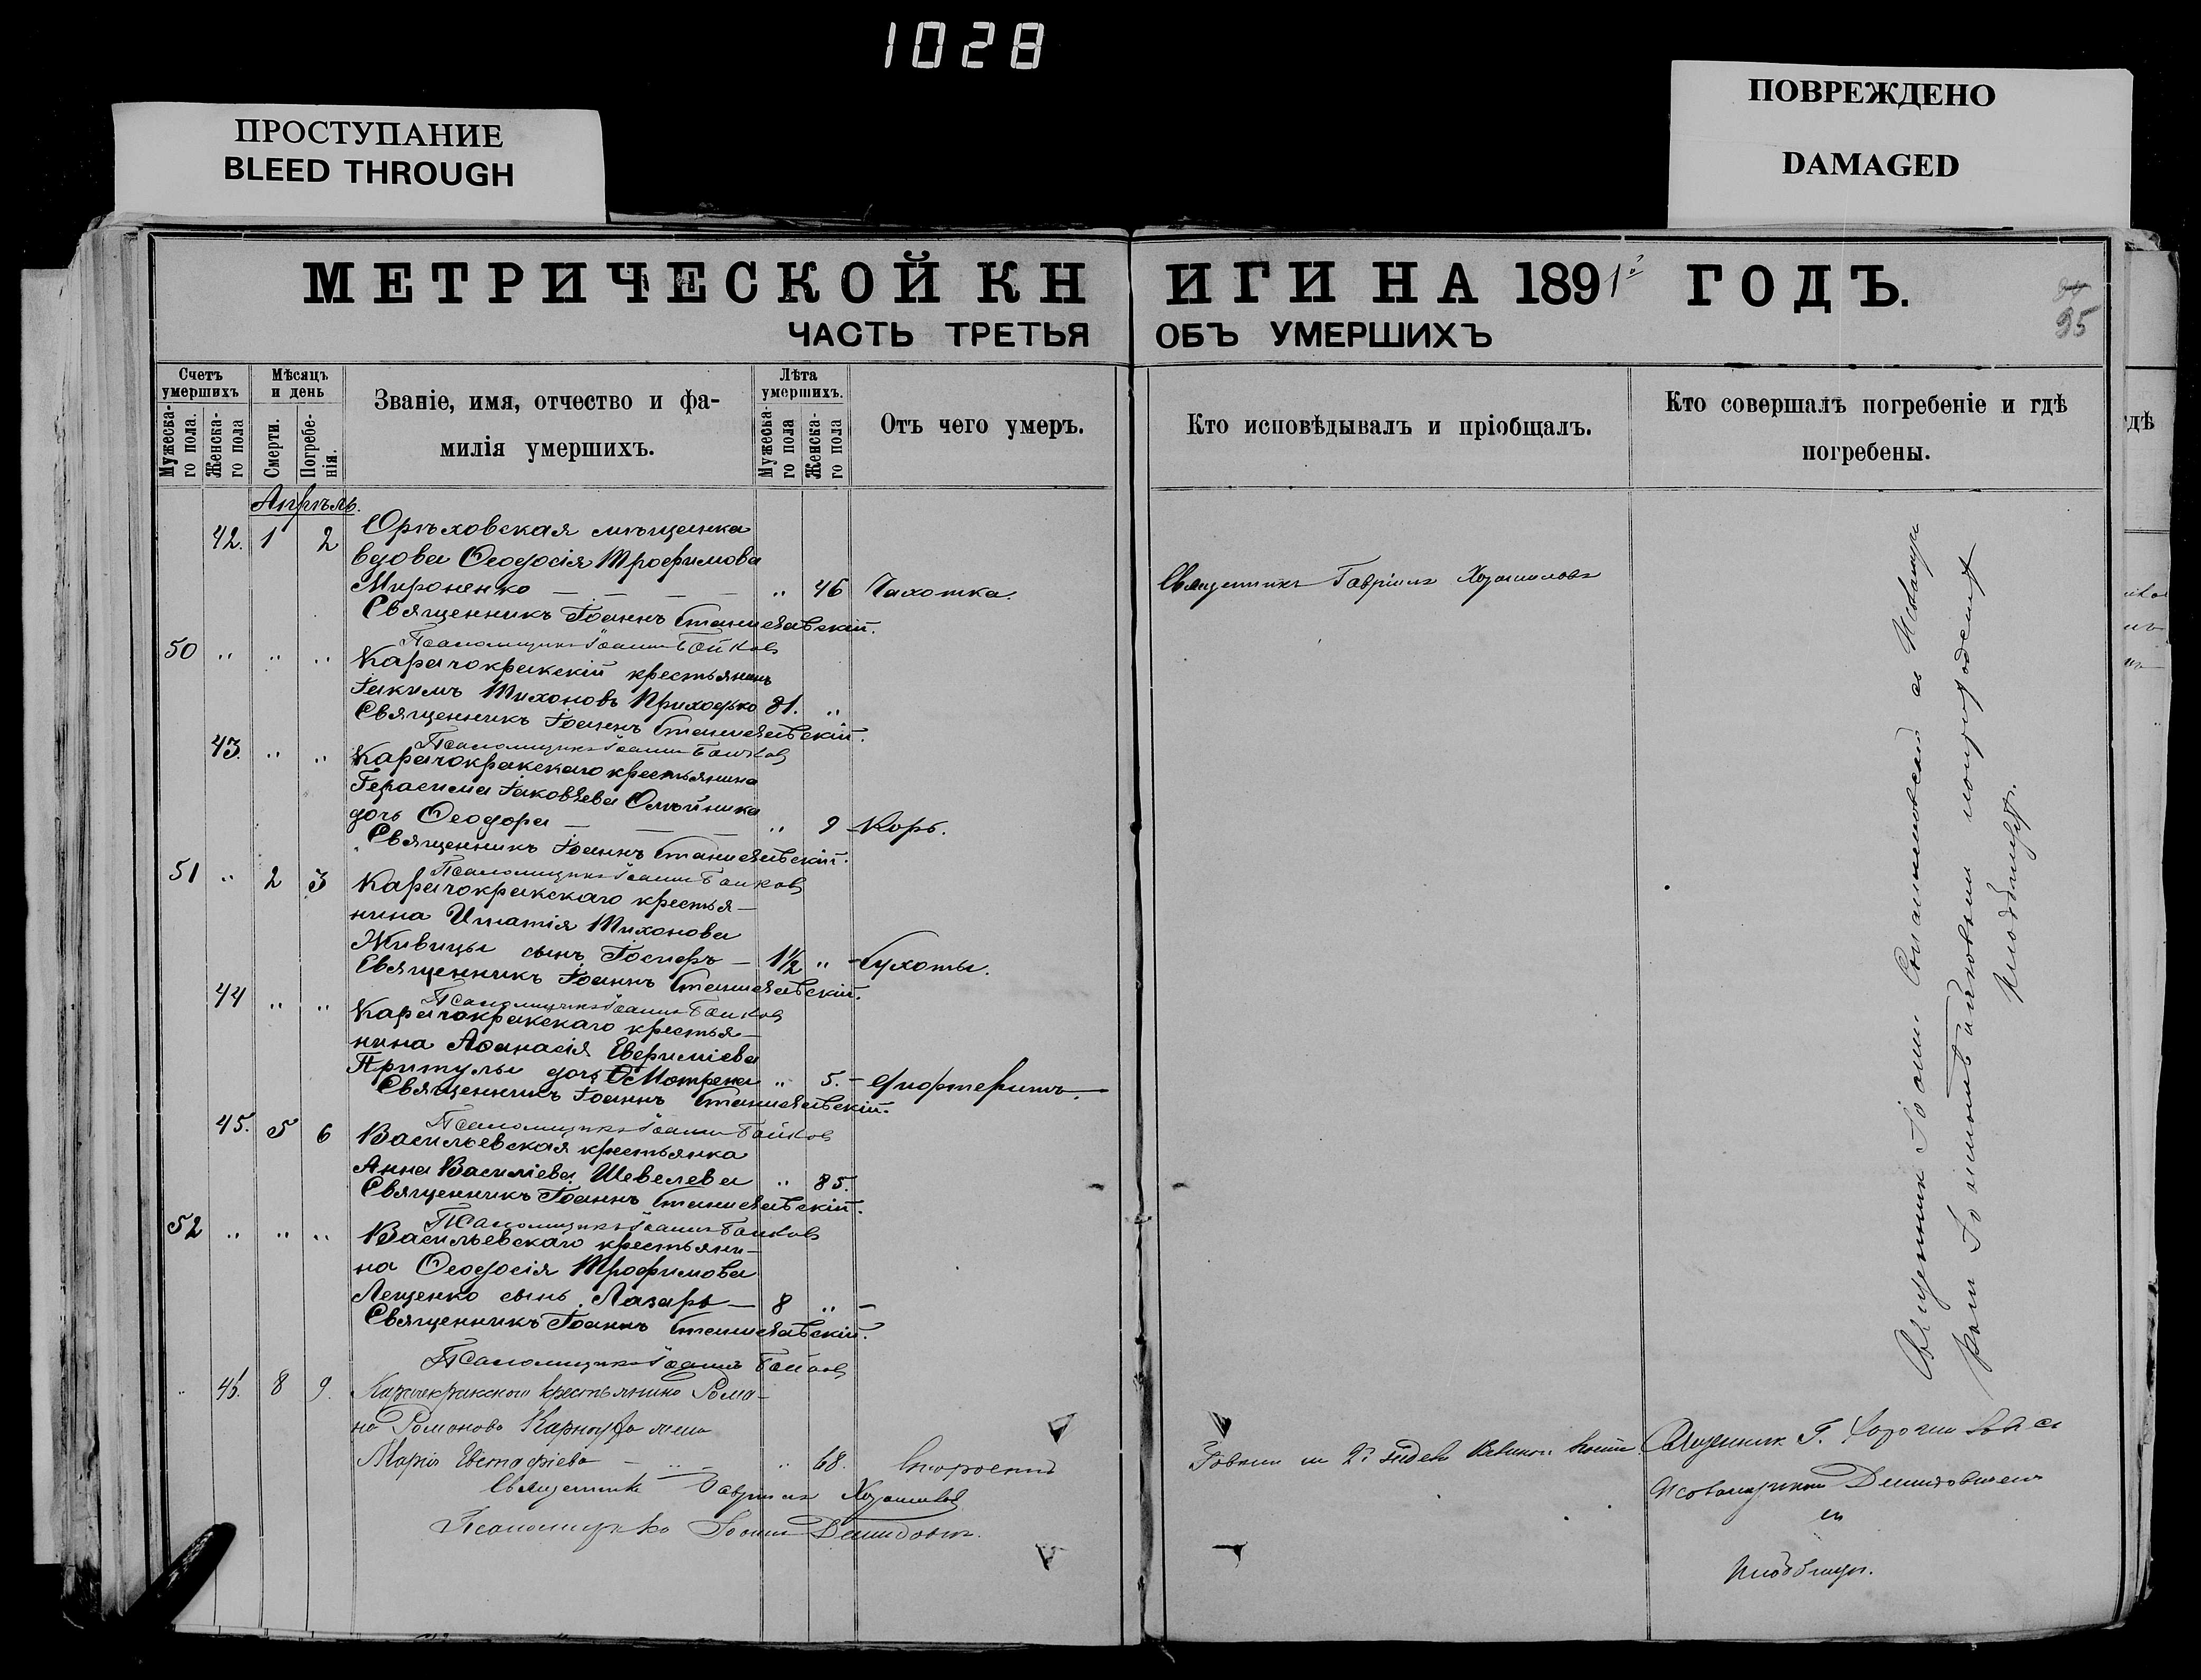 1028
ПРОСТУПАНИЕ
BLEED THROUGH
ПОВРЕЖДЕНО
DAMAGED
МЕТРИЧЕСКОЙ КНИГИ НА 1891 ГОДЪ.
95
ЧАСТЬ ТРЕТЬЯ ОБЪ УМЕРШИХЪ
Счетъ умершихъ
Мужеска-го пола.
Женска-го пола
Мѣсяцъ и день
Смерти.
Погребе-нія.
Званіе, имя, отчество и фа-
милія умершихъ.
Лѣта умершихъ.
Мужеска-го пола
Женска-го пола
Отъ чего умеръ.
Кто исповѣдывалъ и пріобщалъ.
Кто совершалъ погребеніе и гдѣ
погребены.
Апрѣль.
42. 1 2 Орѣховская мѣщанка
вдова Ѳеодосія Трофимова
Мироненко — — — — " 46 Чахотка. Священникъ Гавріилъ
Священникъ Іоаннъ Станиславскій.
Псаломщикъ Іоаннъ Байковъ
50 " " " Карачокракскій крестьянинъ
Іакимъ Тихоновъ Приходько 81. "
Священникъ Іоаннъ Станиславскій.
Псаломщикъ Іоаннъ Байковъ
43. " " Карачокракскаго крестьянина
Герасима Іаковлева Олѣйника
дочь Ѳеодора — — — " 9 Корь.
Священникъ Іоаннъ Станиславскій.
Псаломщикъ Іоаннъ Байковъ
51 " 2 3 Карачокракскаго крестья-
нина Игнатія Тихонова
Живицы сынъ Іосифъ — 1½ " Сухоты.
Священникъ Іоаннъ Станиславскій.
Псаломщикъ Іоаннъ Байковъ
44 " " Карачокракскаго крестья-
нина Аѳанасія Евфиміева
Притулы дочь Мотрена " 5. —
Священникъ Іоаннъ Станиславскій.
Псаломщикъ Іоаннъ Байковъ
45. 5 6 Васильевская крестьянка
Анна Василіева Шевелева " 85.
Священникъ Іоаннъ Станиславскій.
Псаломщикъ Іоаннъ Байковъ
52 " " " Васильевскаго крестьяни-
на Ѳеодосія Трофимова
Лещенко сынъ Лазарь — 8 " —
Священникъ Іоаннъ Станиславскій.
Псаломщикъ Іоаннъ Байковъ
46. 8 9. Карачекракскаго крестьянина Рома-
на Романова жена
Марія Евстафіева — " 68.
Священникъ Гавріилъ
Псаломщикъ Іоаннъ
Священникъ Г.
Священникъ Іоаннъ Станиславскій съ
Іоанномъ Байковымъ